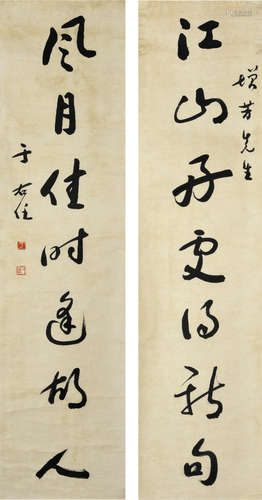 增芳先生
江山好處得新句
風月佳時逢故人
于右任